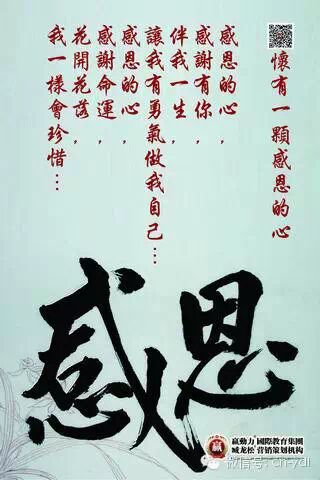 懷有一顆感恩的心
感恩的心，
感謝有你，
伴我一生，
讓我有勇氣做我自己…
感恩的心，
感謝命運，
花開花落，
我一樣會珍惜…
感恩
赢
赢動力 國際教育集團
臧龙松 营销策划机构
微信号: ch-ydl